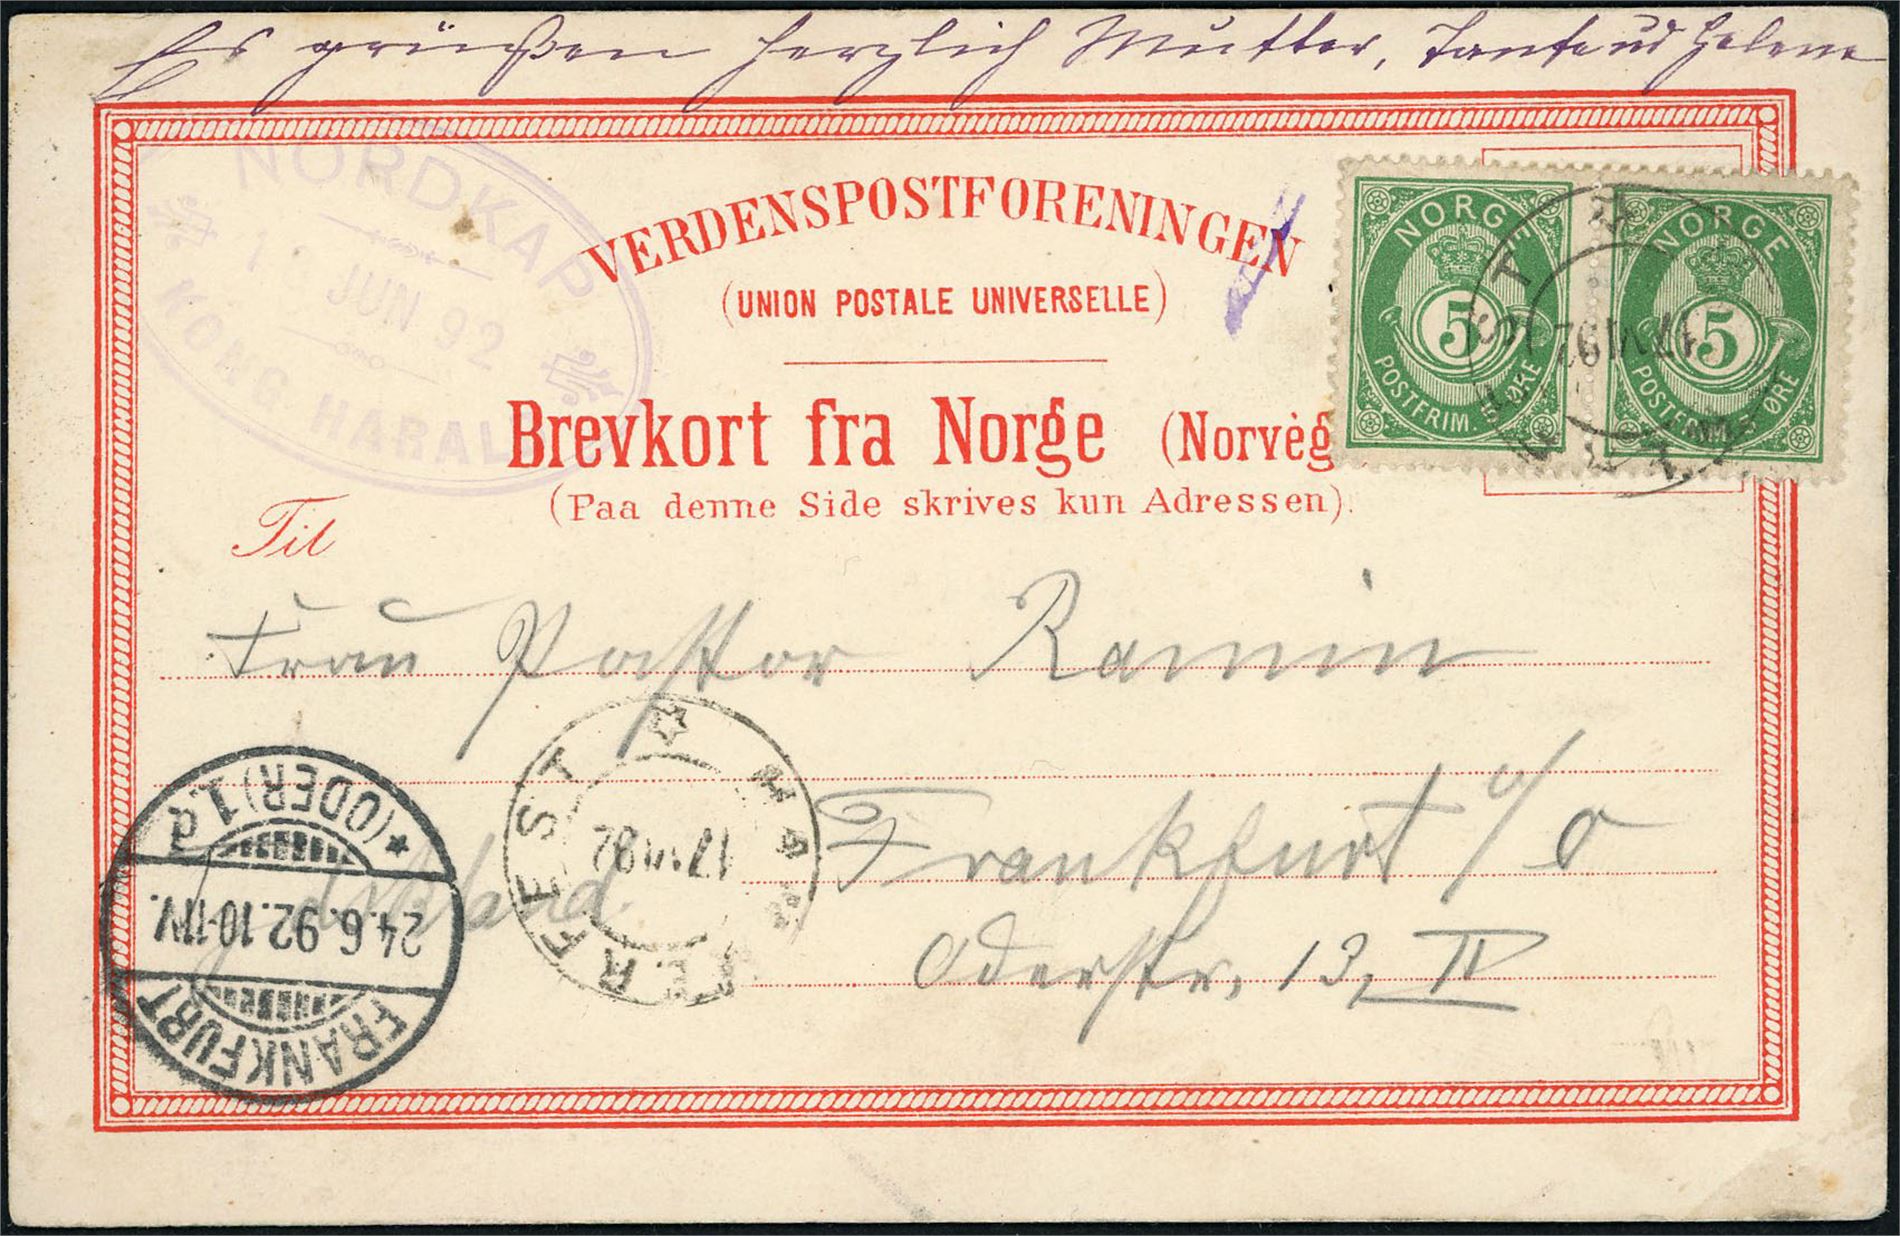 Es grüßen herzlich Mutter, Tante und Helene
NORDKAP
JUN 92
KONG HARAL
VERDENSPOSTFORENINGEN
(UNION POSTALE UNIVERSELLE)
Brevkort fra Norge (Norvèg
(Paa denne Side skrives kun Adressen).
NORGE
5
POSTFRIM. 5 ØRE
NORGE
5
POSTFRIM. 5 ØRE
17 VI 92
Til
Frau Pastor Ramin
Frankfurt a/O
Oderstr. 13, II
HAMMERFEST
17 VI 92
FRANKFURT
24.6.92.10-11V.
* (ODER) 1. d